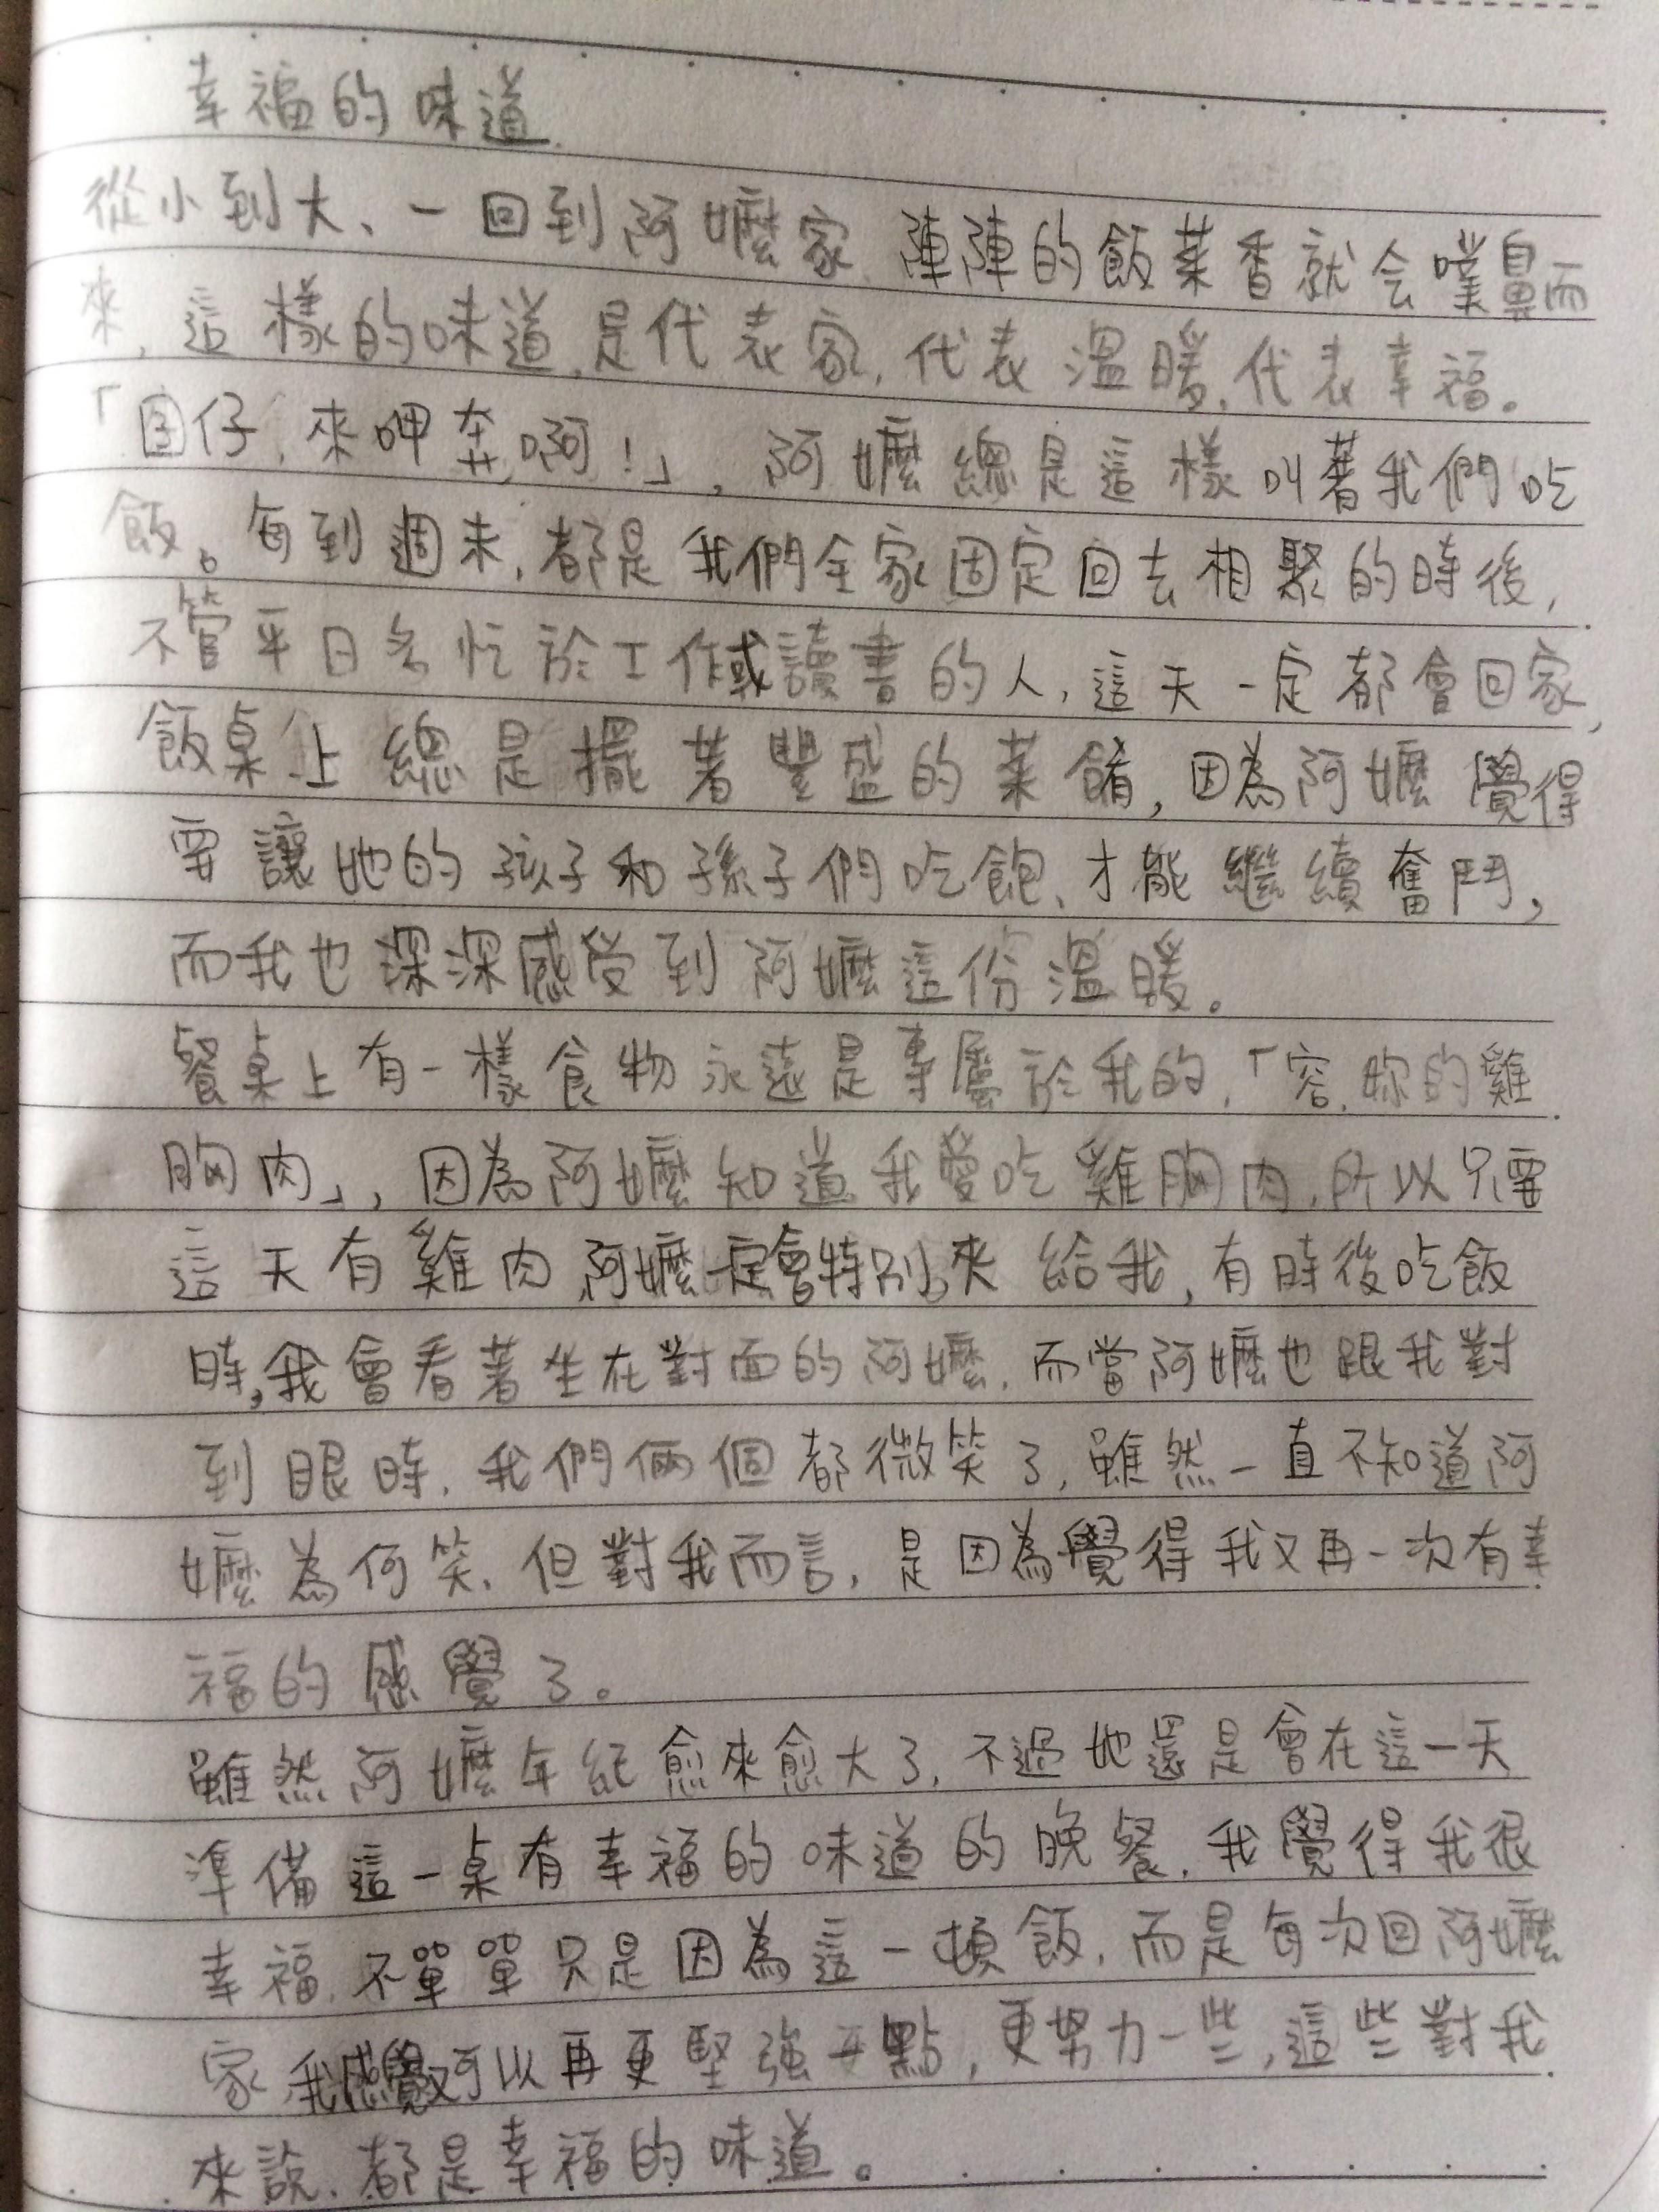 幸福的味道
從小到大、一回到阿嬤家,陣陣的飯菜香就会噗鼻而
來,這樣的味道,是代表家,代表溫暖,代表幸福。
「囝仔,來呷奔啊!」,阿嬤總是這樣叫著我們吃
飯。每到週末,都是我們全家固定回去相聚的時後,
不管平日多忙於工作或讀書的人,這天一定都會回家,
飯桌上總是擺著豐盛的菜餚,因為阿嬤覺得
要讓她的孩子和孫子們吃飽、才能繼續奮鬥,
而我也深深感受到阿嬤這份溫暖。
餐桌上有一樣食物永遠是專屬於我的,「容,妳的雞
胸肉」,因為阿嬤知道我愛吃雞胸肉,所以只要
這天有雞肉,阿嬤一定會特別夾給我,有時後吃飯
時,我會看著坐在對面的阿嬤,而當阿嬤也跟我對
到眼時,我們倆個都微笑了,雖然一直不知道阿
嬤為何笑,但對我而言,是因為覺得我又再一次有幸
福的感覺了。
雖然阿嬤年紀愈來愈大了,不過她還是會在這一天
準備這一桌有幸福的味道的晚餐,我覺得我很
幸福,不單單只是因為這一頓飯,而是每次回阿嬤
家,我感覺又可以再更堅強一點,更努力一些,這些對我
來說,都是幸福的味道。